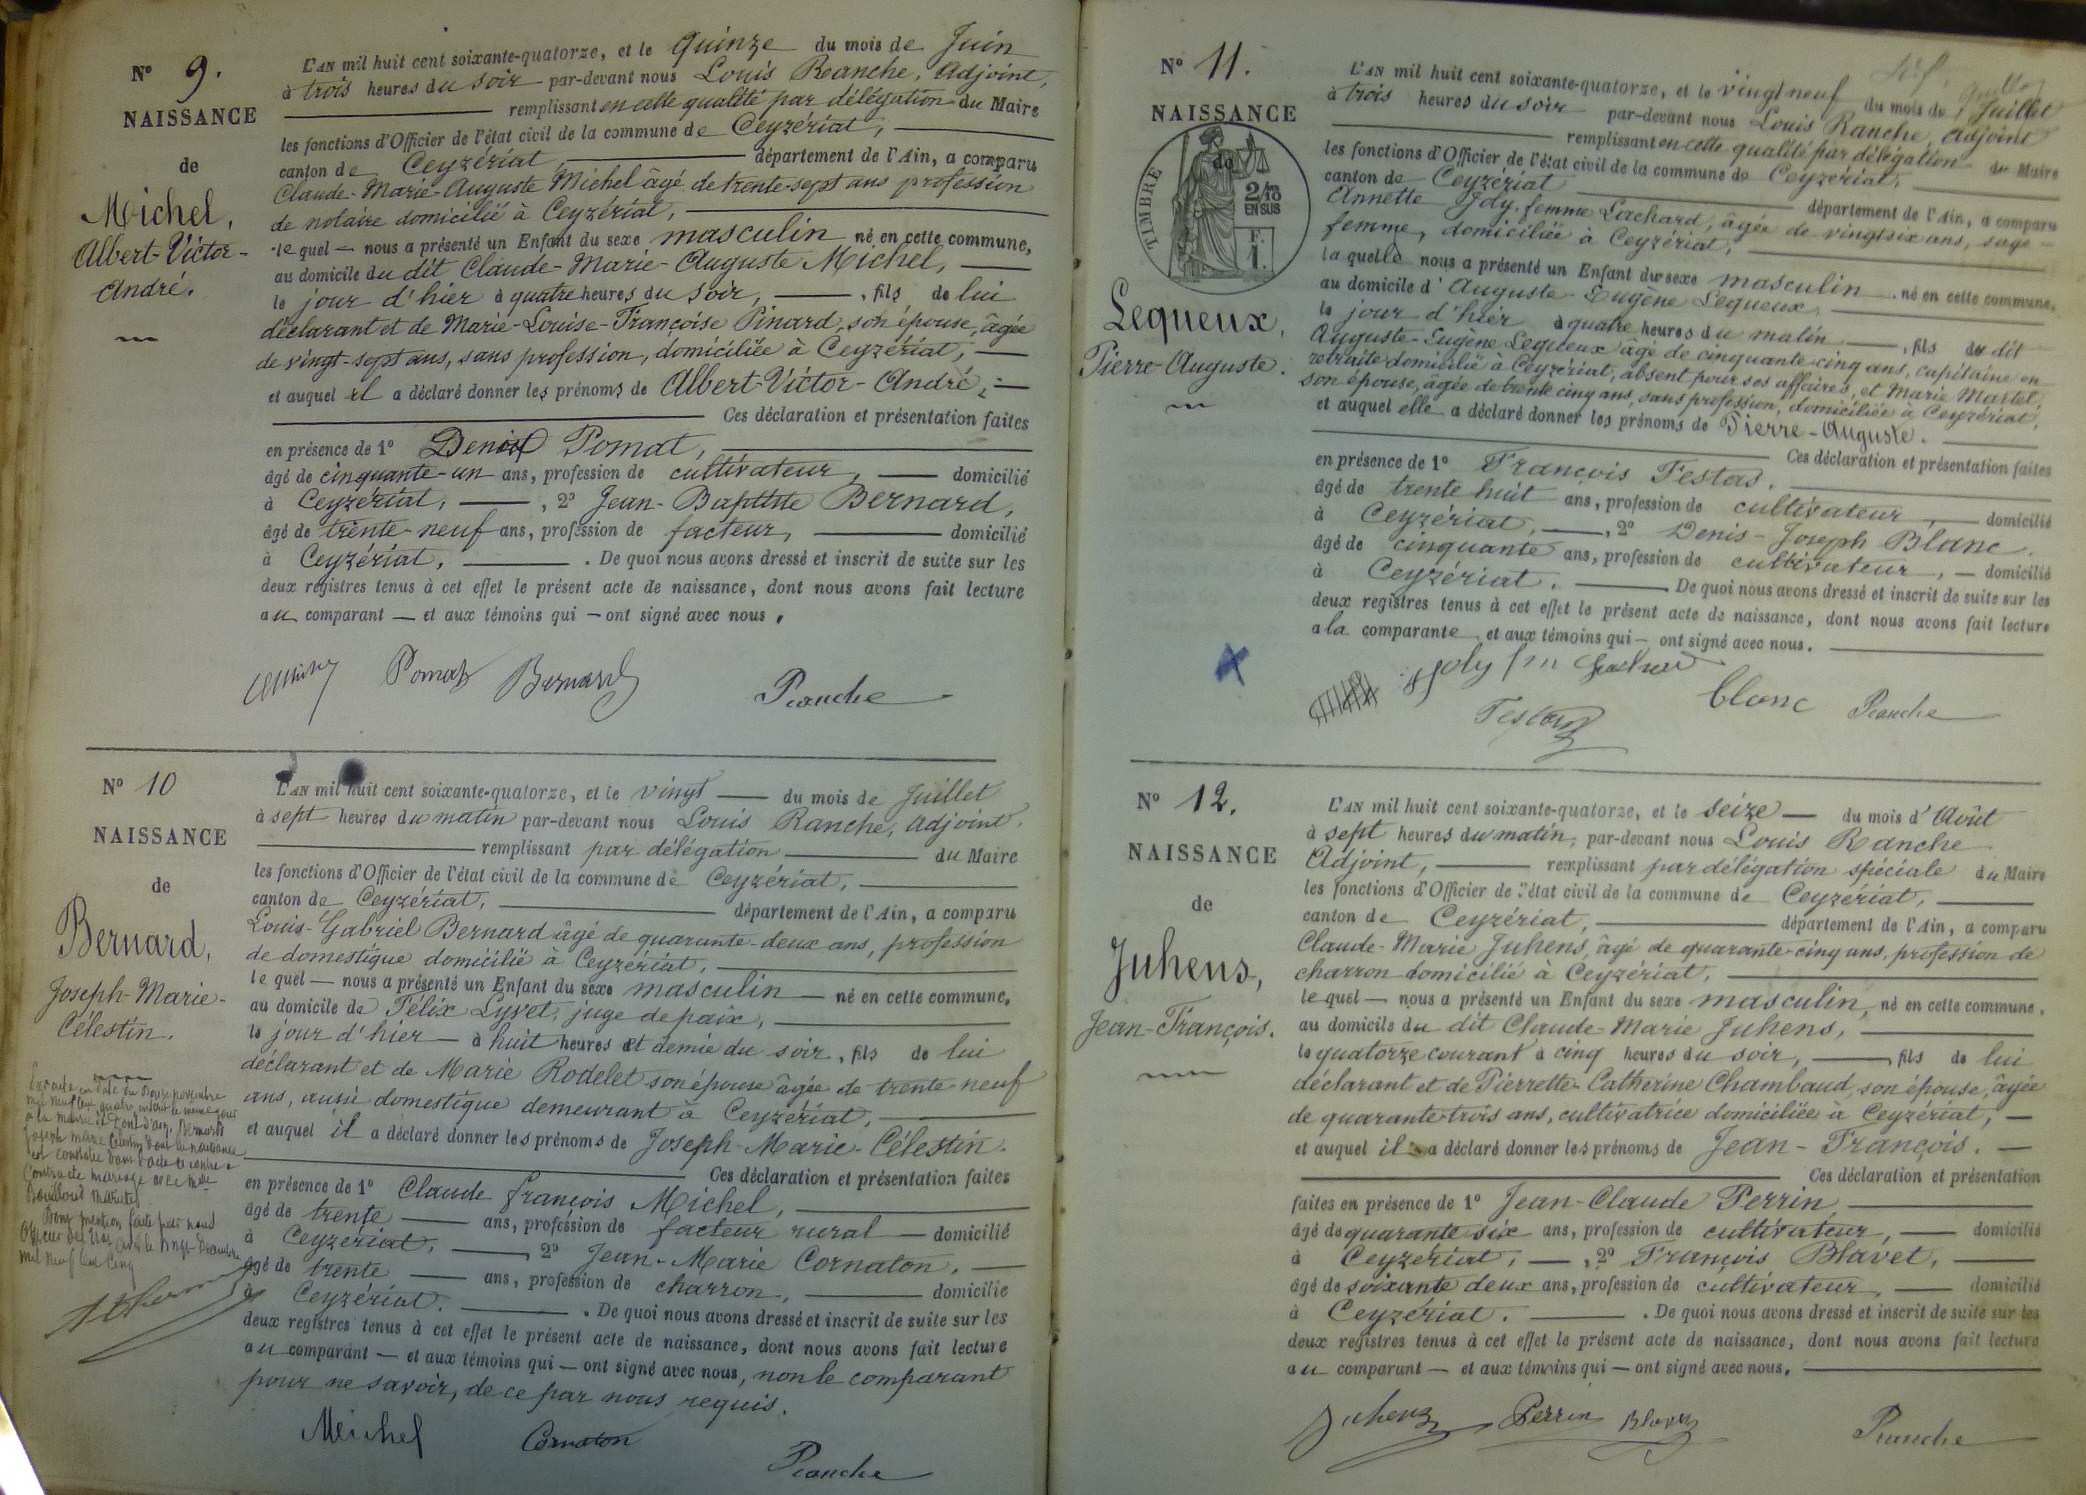 N° 9.
NAISSANCE
de
Michel,
Albert-Victor-
André.
L'AN mil huit cent soixante-quatorze, et le quinze du mois de Juin
à trois heures du soir par-devant nous Louis Ranche, Adjoint,
remplissant en cette qualité par délégation du Maire
les fonctions d'Officier de l'état civil de la commune de Ceyzériat,
canton de Ceyzériat, département de l'Ain, a comparu
Claude-Marie-Auguste Michel âgé de trente-sept ans profession
de notaire domicilié à Ceyzériat,
le quel nous a présenté un Enfant du sexe masculin né en cette commune,
au domicile du dit Claude-Marie-Auguste Michel,
le jour d'hier à quatre heures du soir, fils de lui
déclarant et de Marie-Louise-Françoise Pinard, son épouse, âgée
de vingt-sept ans, sans profession, domiciliée à Ceyzériat,
et auquel il a déclaré donner les prénoms de Albert-Victor-André,
Ces déclaration et présentation faites
en présence de 1° Denis Pomat,
âgé de cinquante-un ans, profession de cultivateur, domicilié
à Ceyzériat, , 2° Jean-Baptiste Bernard,
âgé de trente-neuf ans, profession de facteur, domicilié
à Ceyzériat, . De quoi nous avons dressé et inscrit de suite sur les
deux registres tenus à cet effet le présent acte de naissance, dont nous avons fait lecture
au comparant et aux témoins qui ont signé avec nous.
Pomat Bernard
Ranche
N° 10
NAISSANCE
de
Bernard,
Joseph-Marie-
Célestin.
L'AN mil huit cent soixante-quatorze, et le vingt du mois de Juillet
à sept heures du matin par-devant nous Louis Ranche, Adjoint,
remplissant par délégation du Maire
les fonctions d'Officier de l'état civil de la commune de Ceyzériat,
canton de Ceyzériat, département de l'Ain, a comparu
Louis-Gabriel Bernard âgé de quarante-deux ans, profession
de domestique domicilié à Ceyzériat,
le quel nous a présenté un Enfant du sexe masculin né en cette commune,
au domicile de Félix Lyvet, juge de paix,
le jour d'hier à huit heures et demie du soir, fils de lui
déclarant et de Marie Rodelet son épouse âgée de trente neuf
ans, aussi domestique demeurant à Ceyzériat,
et auquel il a déclaré donner les prénoms de Joseph-Marie-Célestin.
Ces déclaration et présentation faites
en présence de 1° Claude françois Michel,
âgé de trente ans, profession de facteur rural domicilié
à Ceyzériat, 2° Jean-Marie Cornaton,
âgé de trente ans, profession de charron, domicilié
à Ceyzériat. . De quoi nous avons dressé et inscrit de suite sur les
deux registres tenus à cet effet le présent acte de naissance, dont nous avons fait lecture
au comparant et aux témoins qui ont signé avec nous, non le comparant
pour ne savoir, de ce par nous requis.
Michel Cornaton
Ranche
en date du douze novembre
mil neuf cent quatre, inscrit le même jour
à la mairie de Bernard
Joseph marie Célestin dont la naissance
est constatée dans l'acte ci contre a
Contracté mariage avec
Dont mention faite par nous
Officier de l'état civil le vingt Décembre
mil neuf cent cinq
N° 11.
NAISSANCE
de
TIMBRE
2/10
EN SUS
F.
1.
Lequeux,
Pierre-Auguste.
L'AN mil huit cent soixante-quatorze, et le vingt neuf du mois de Juillet
à trois heures du soir par-devant nous Louis Ranche, Adjoint
remplissant en cette qualité par délégation du Maire
les fonctions d'Officier de l'état civil de la commune de Ceyzériat,
canton de Ceyzériat département de l'Ain, a comparu
Annette Joly, femme Lachard, âgée de vingt six ans, sage-
femme, domiciliée à Ceyzériat,
la quelle nous a présenté un Enfant du sexe masculin né en cette commune,
au domicile d'Auguste-Eugène Lequeux,
le jour d'hier à quatre heures du matin, fils du dit
Auguste-Eugène Lequeux âgé de cinquante-cinq ans, capitaine en
retraite domicilié à Ceyzériat, absent pour ses affaires, et Marie Martel,
son épouse, âgée de trente cinq ans, sans profession, domiciliée à Ceyzériat,
et auquel elle a déclaré donner les prénoms de Pierre-Auguste.
Ces déclaration et présentation faites
en présence de 1° François Festas,
âgé de trente huit ans, profession de cultivateur, domicilié
à Ceyzériat, , 2° Denis-Joseph Blanc.
âgé de cinquante ans, profession de cultivateur, domicilié
à Ceyzériat. De quoi nous avons dressé et inscrit de suite sur les
deux registres tenus à cet effet le présent acte de naissance, dont nous avons fait lecture
a la comparante et aux témoins qui ont signé avec nous.
joly
blanc Ranche
Festas
N° 12.
NAISSANCE
de
Juhens,
Jean-François.
L'AN mil huit cent soixante-quatorze, et le seize du mois d'Août
à sept heures du matin, par-devant nous Louis Ranche
Adjoint, remplissant par délégation spéciale du Maire
les fonctions d'Officier de l'état civil de la commune de Ceyzériat,
canton de Ceyzériat, département de l'Ain, a comparu
Claude-Marie Juhens, âgé de quarante-cinq ans, profession de
charron domicilié à Ceyzériat,
le quel nous a présenté un Enfant du sexe masculin, né en cette commune,
au domicile du dit Claude-Marie Juhens,
le quatorze courant à cinq heures du soir, fils de lui
déclarant et de Pierrette-Catherine Chambaud, son épouse, âgée
de quarante-trois ans, cultivatrice domiciliée à Ceyzériat,
et auquel il a déclaré donner les prénoms de Jean-François.
Ces déclaration et présentation
faites en présence de 1° Jean-Claude Perrin,
âgé de quarante six ans, profession de cultivateur, domicilié
à Ceyzériat, , 2° François Blavet,
âgé de soixante deux ans, profession de cultivateur, domicilié
à Ceyzériat. . De quoi nous avons dressé et inscrit de suite sur les
deux registres tenus à cet effet le présent acte de naissance, dont nous avons fait lecture
au comparant et aux témoins qui ont signé avec nous.
Juhens Perrin Blavet
Ranche